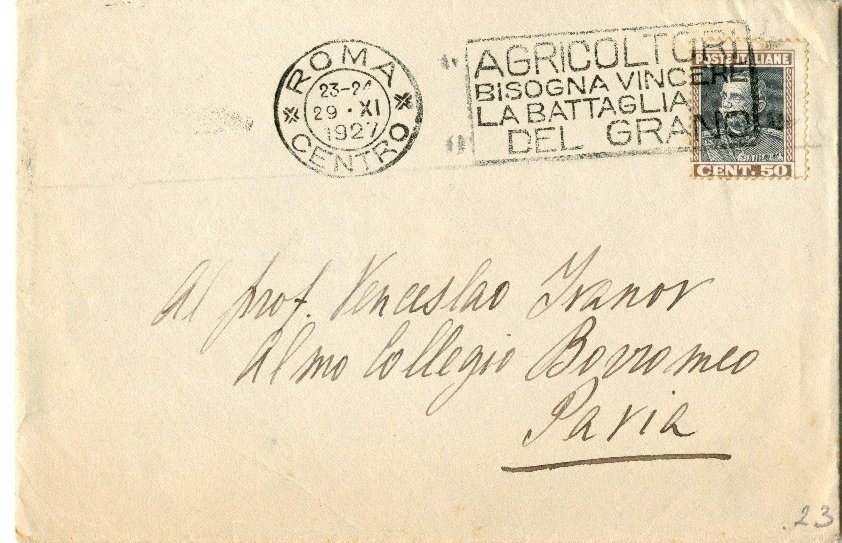 ROMA
23-24
29 · XI
1927
CENTRO
AGRICOLTORI
BISOGNA VINCERE
LA BATTAGLIA
DEL GRANO
POSTE ITALIANE
CENT. 50
Al prof. Venceslao Ivanov
Almo Collegio Borromeo
Pavia
23